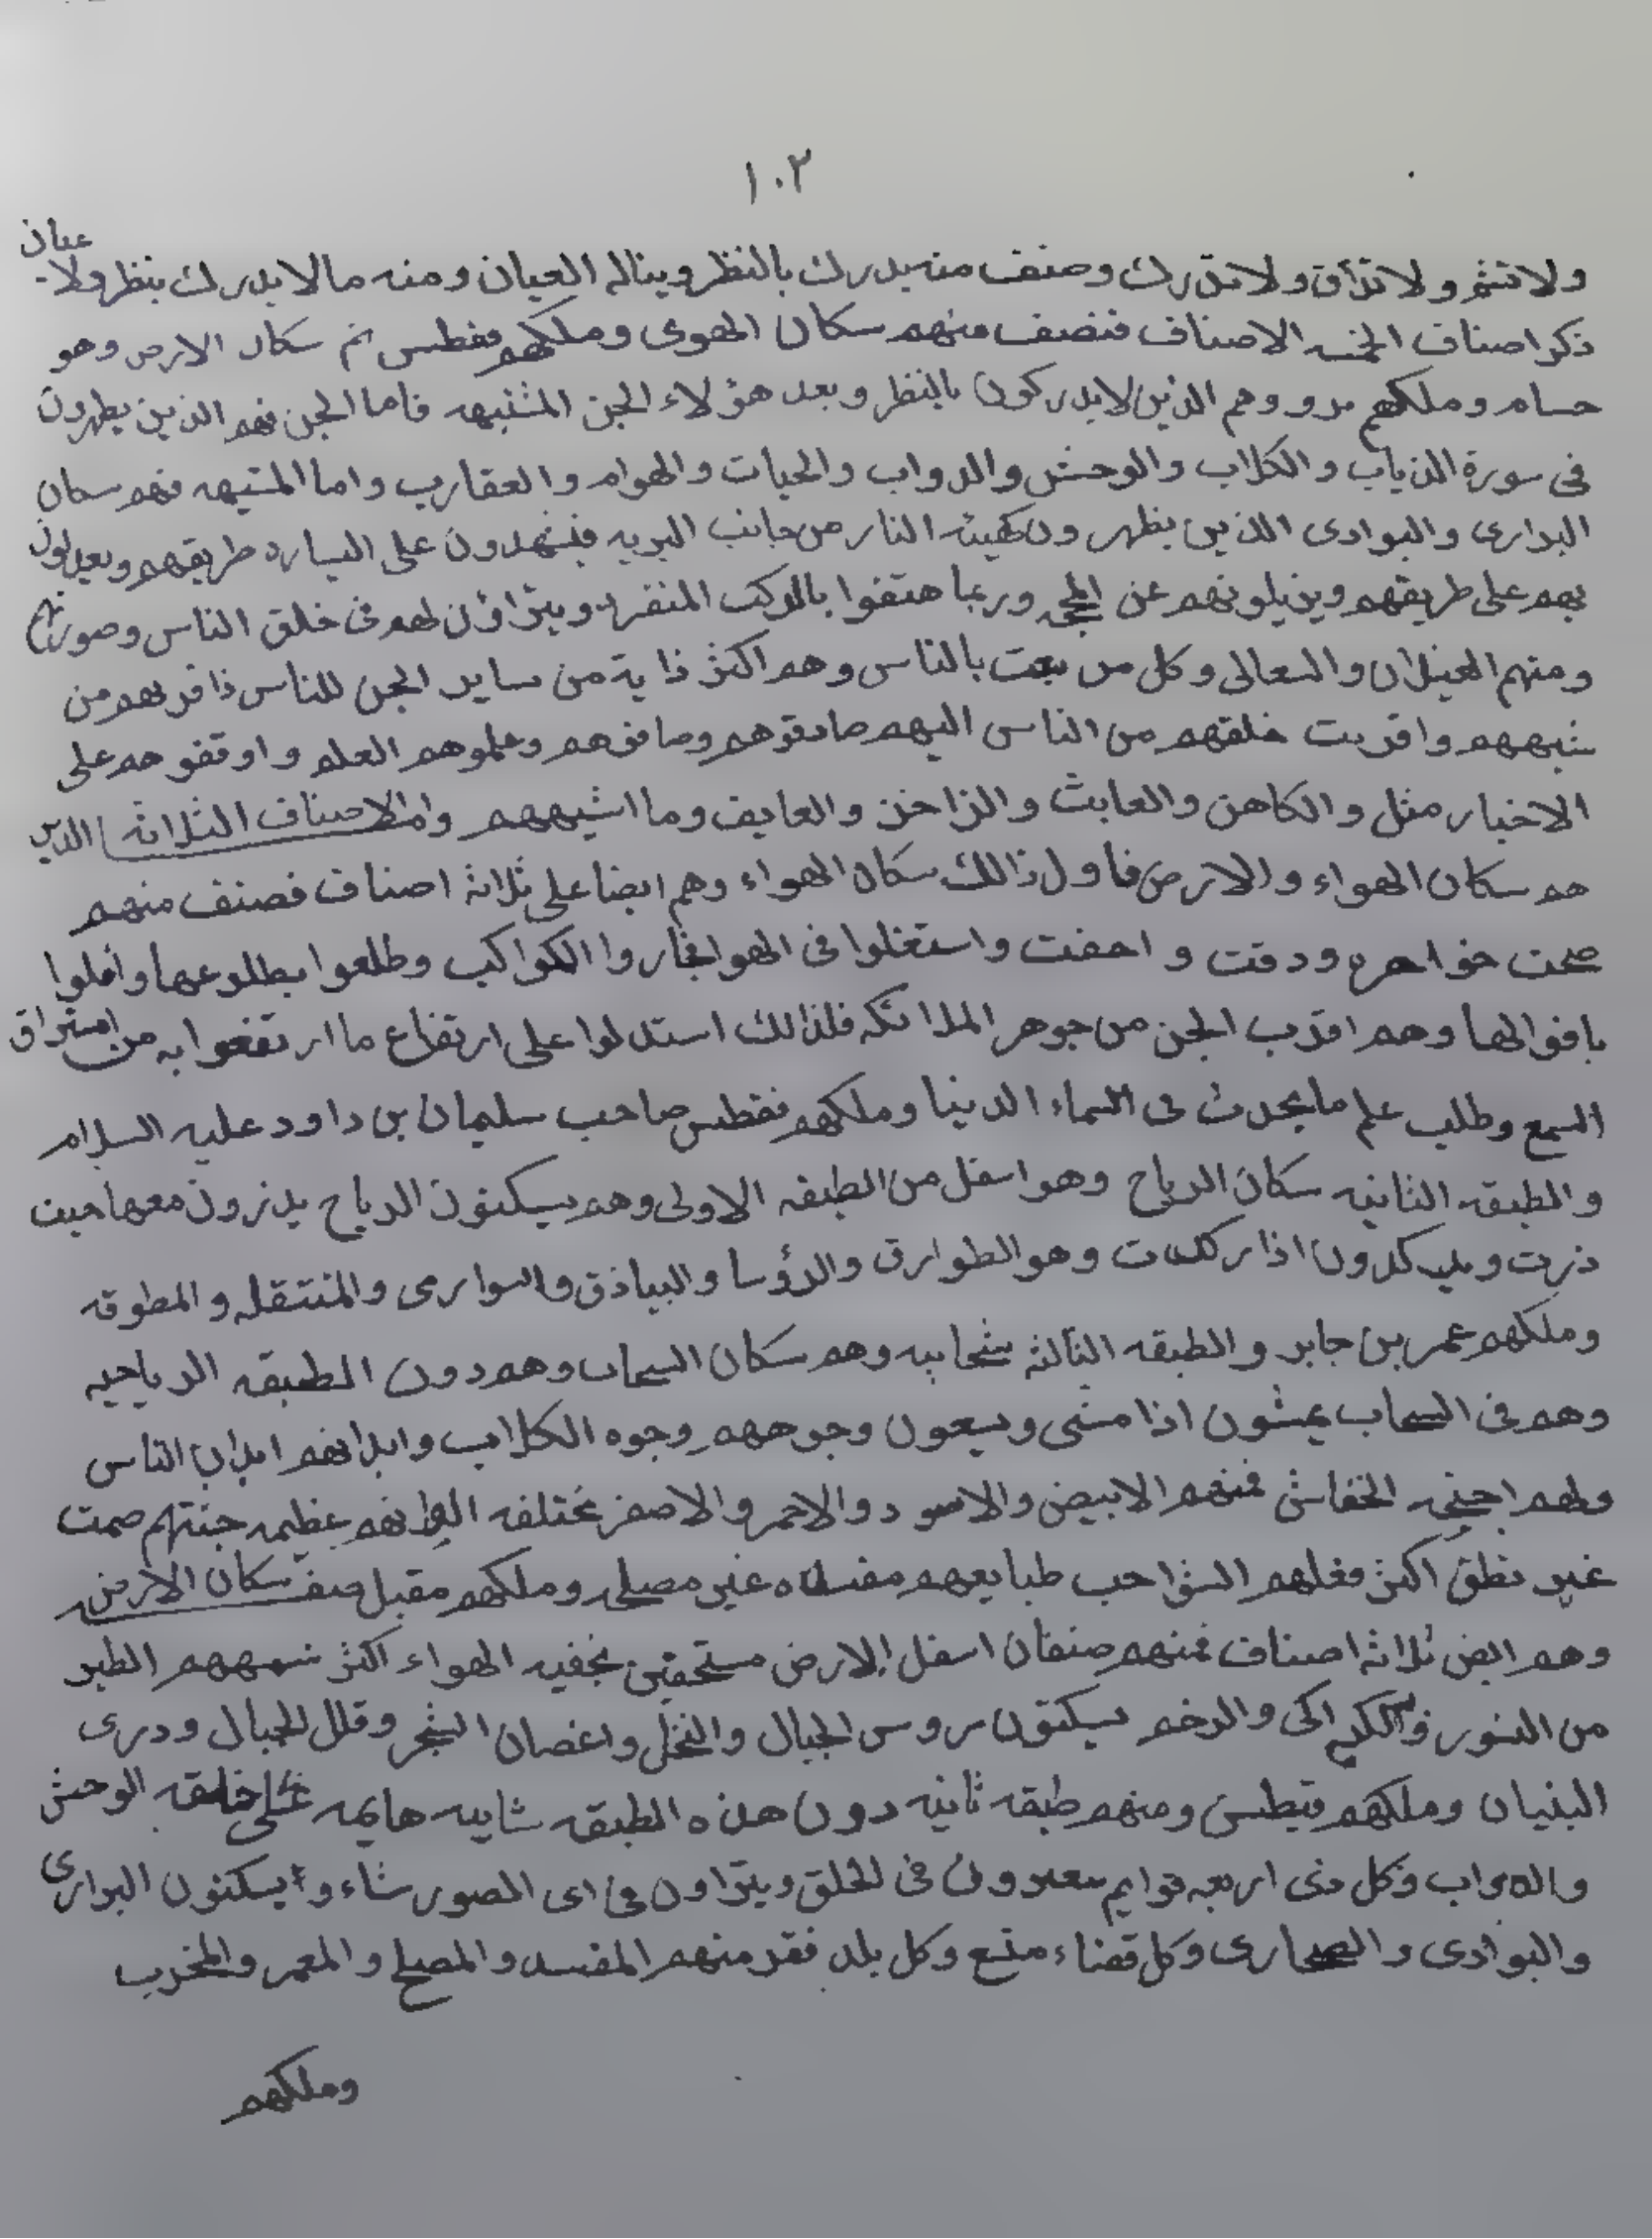 ١٠٢
ولا تشم ولا تذاق ولا تدرك وصنف منه يدرك بالنظر ويناله العيان ومنه مالا يدرك بنظر ولا عيان
ذكر اصناف الجن الاصناف فنصف منهم سكان الهوى وملكهم فقطس ثم سكان الارض وهو
حسام وملكهم وهم الذين لا يدركون بالنظر وبعد هؤلاء الجن المشبهه فاما الجن فهم الذين يظهرون
فى سورة الذياب والكلاب والوحش والدواب والحيات والهوام والعقارب واما المشبهه فهم سكان
البرارى والبوادى الذين يظهرون كهيئه النار من جانب البريه على السياره طريقهم ويعدلون
بهم على طريقهم ويزيلونهم عن وربما هتفوا بالركب المنفرد ويتراؤن لهم فى خلق الناس وصورتهم
ومنهم الغيلان والسعالى وكل من بالناس وهم اكثر ذاية من ساير الجن للناس ذا قربهم من
شبههم واقربت خلقهم من الناس اليهم صادقوهم وصافوهم وعلموهم العلم واوقفوهم على
الاخبار مثل والكاهن والعابث والزاخر والعايف وما اشبههم والاصناف الثلاثة الذين
هم سكان الهواء والارض فاول ذالك سكان الهواء وهم ايضا على ثلاثة اصناف فصنف منهم
ودقت واستغلوا فى الهوا الكواكب وطلعوا بطلوعها وافلوا
بافوالها وهم اقرب الجن من جوهر الملائكه فلذالك استدلوا على ارتفاع ما ارتفعوا به من استراق
السمع وطلب علم ما يحدث فى السماء الدنيا وملكهم فقطس صاحب سليمان بن داود عليه السلام
والطبقه الثانيه سكان الرياح وهو اسفل من الطبقه الاولى وهم يسكنون الرياح يذرون معها حيث
ذرت اذا وهو الطوارق والرؤسا والبياذق والسوارى والمنتقله والمطوقه
وملكهم عمر بن جابر والطبقه الثالثه سحابيه وهم سكان السحاب وهم دون الطبقه الرياحيه
وهم فى السحاب يمشون اذا مشى ويسعون وجوههم وجوه الكلاب وابدانهم ابدان الناس
ولهم اجنحه الخفاش فمنهم الابيض والاسود والاحمر والاصفر مختلفه الوانهم عظيمه جثتهم صمت
غير نطق اكثر فعلهم طبايعهم مفسده غير مصلحه وملكهم مقبل صنف سكان الارض
وهم ايض ثلاثة اصناف فمنهم صنفان اسفل الارض الهواء اكثر شبههم الطير
من النسور والكراكى والرخم يسكنون روس الجبال والنخل واغصان الشجر وقلل الجبال ودرى
البنيان وملكهم فيطس ومنهم طبقه ثانيه دون هذه الطبقه سايبه هايمه على خلقه الوحش
والدواب وكل ذى اربعه قوايم فى الخلق ويتراون فى اى الصور شاءوا يسكنون البرارى
والبوادى والصحارى وكل فضاء متسع وكل بلد فقر منهم المفسد والمصلح والمعمر والمخرب
وملكهم